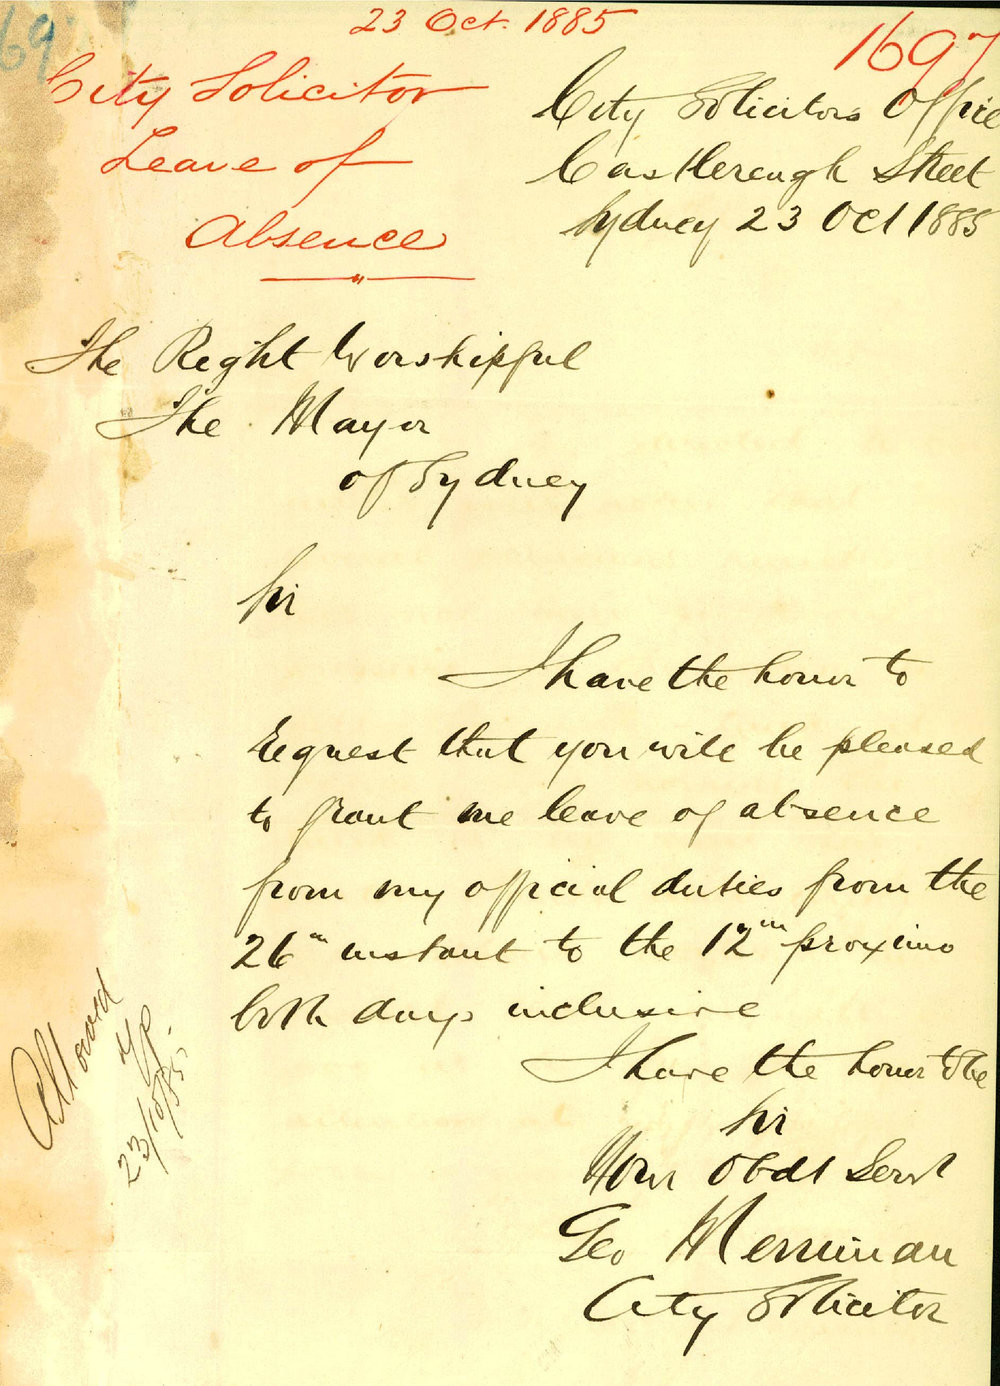 69
23 Oct. 1885
1697
City Solicitor
Leave of
Absence
City Solicitors Office
Castlereagh Street
Sydney 23 Oct 1885
The Right Worshipful
The Mayor
of Sydney
Sir
I have the honor to
request that you will be pleased
to grant me leave of absence
from my official duties from the
26th instant to the 12th proximo
both days inclusive
I have the honor to be
Sir
Your Obdt Servt
Geo Merriman
City Solicitor
Allowed
23/10/85